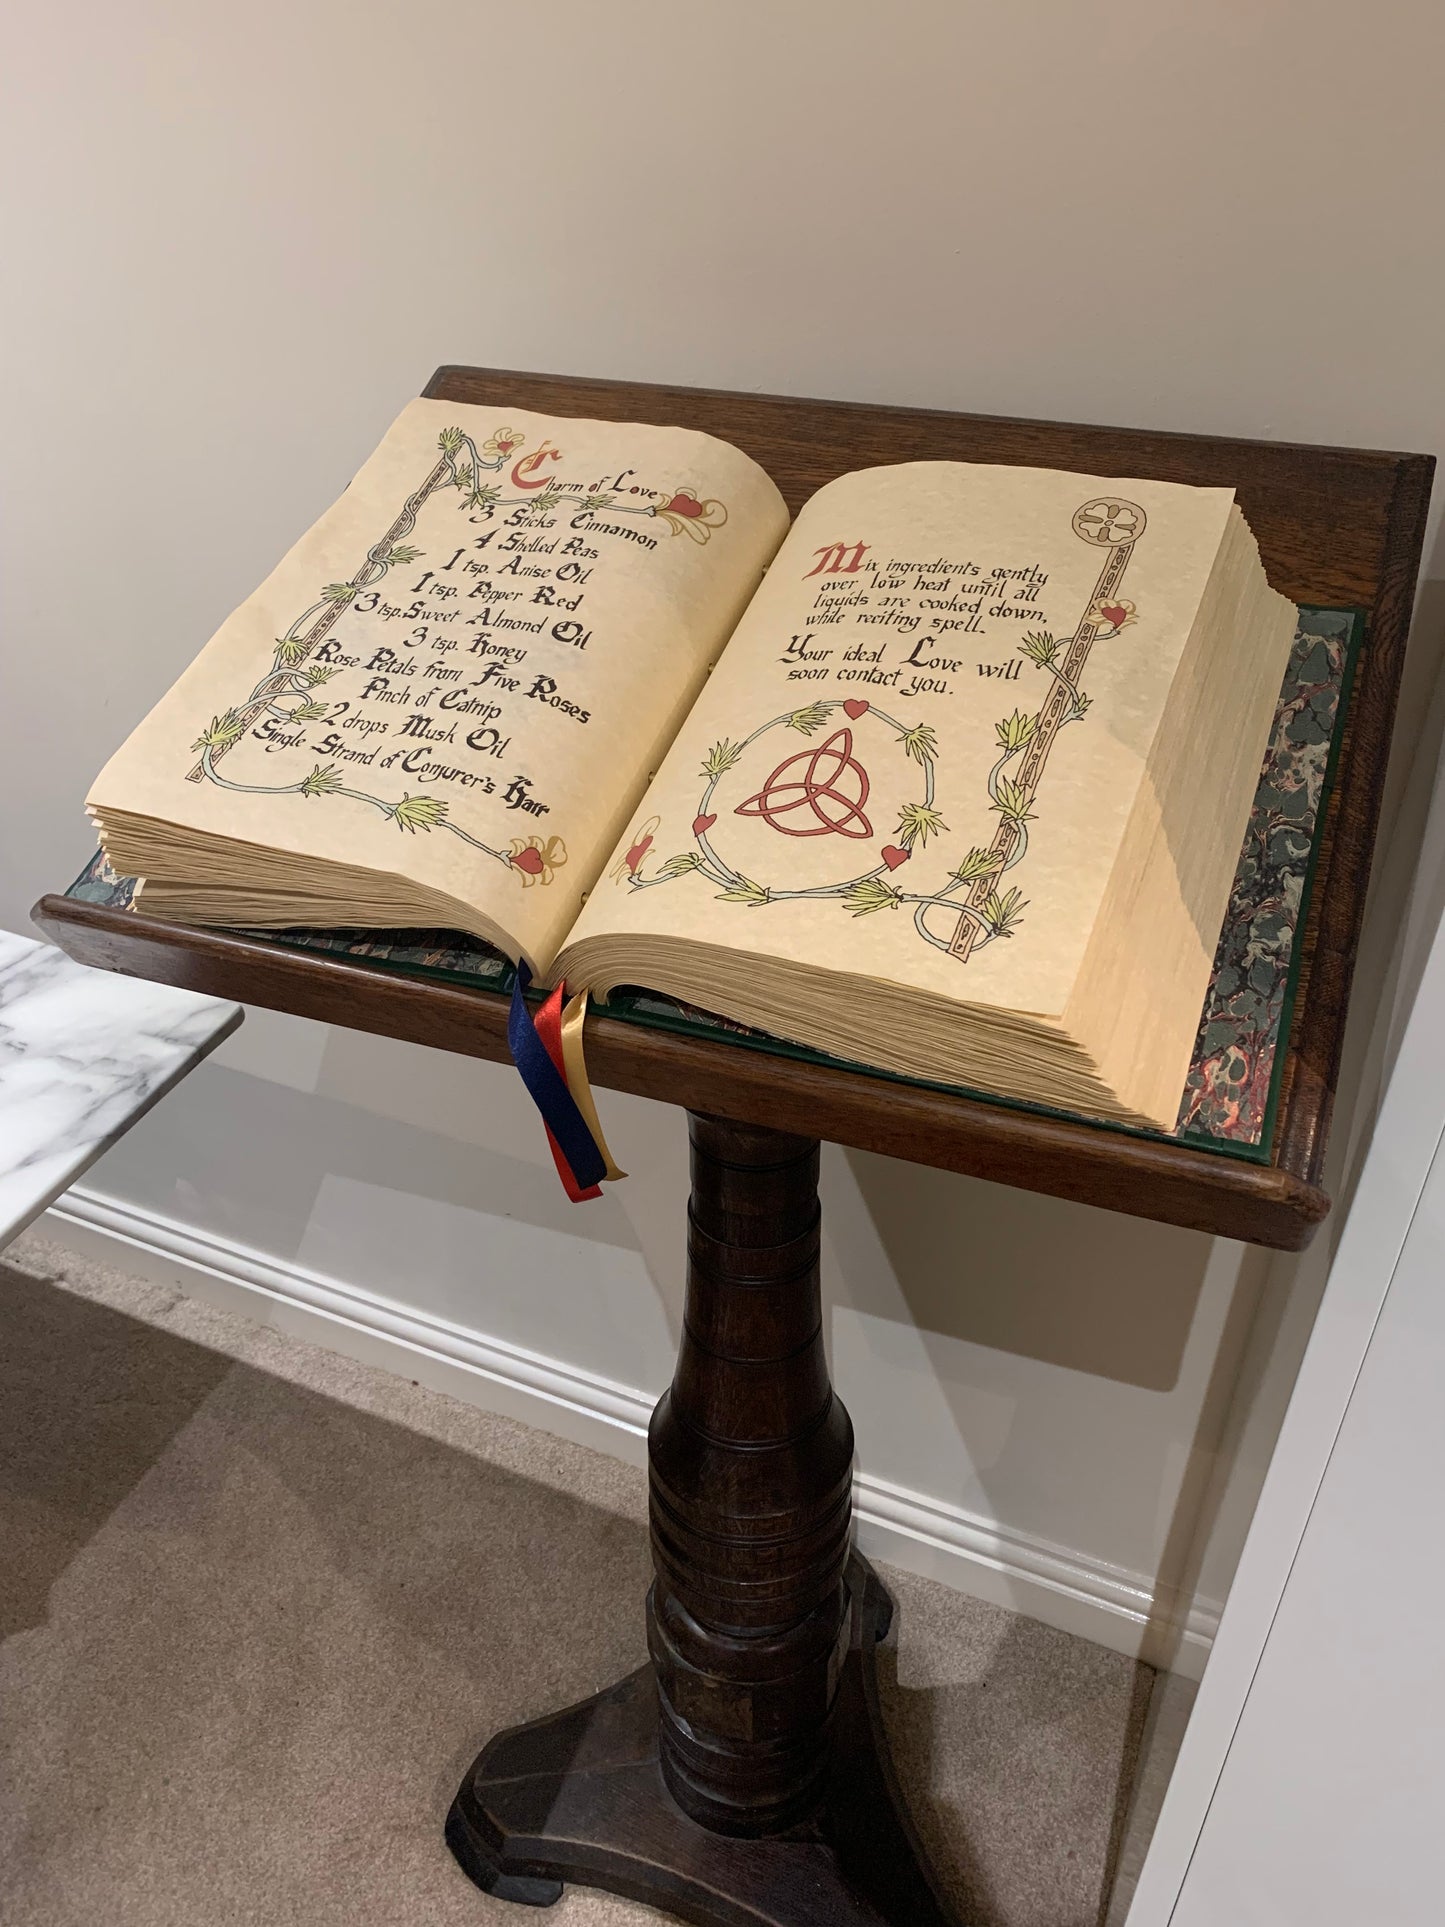 Charm of Love
3 Sticks Cinnamon
4 Shelled Peas
1 tsp. Anise Oil
1 tsp. Pepper Red
3 tsp. Sweet Almond Oil
3 tsp. Honey
Rose Petals from Five Roses
Pinch of Catnip
2 drops Musk Oil
Single Strand of Conjurer's Hair
Mix ingredients gently
over low heat until all
liquids are cooked down,
while reciting spell.
Your ideal Love will
soon contact you.